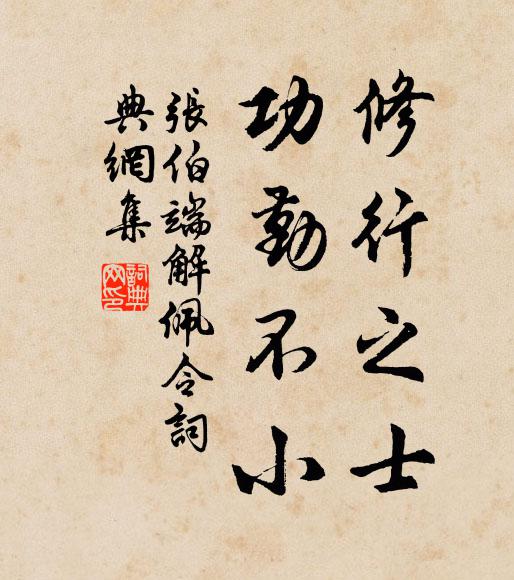 修行之士
功勤不小
張伯端解佩令詞
典網集
詞典網印